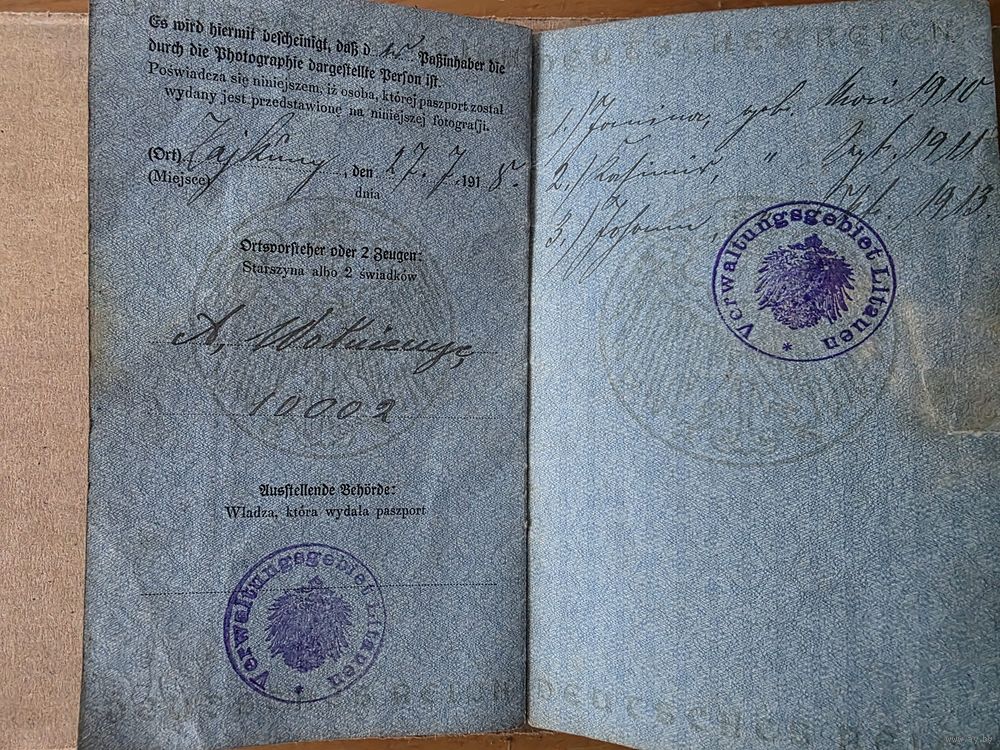 Es wird hiermit bescheinigt, daß d er Paßinhaber die
durch die Photographie dargestellte Person ist.
Poświadcza się niniejszem, iż osoba, której paszport został
wydany jest przedstawione na niniejszej fotografji.
(Ort) Zajkuny, den 27. 7. 1918.
(Miejsce) dnia
Ortsvorsteher oder 2 Zeugen:
Starszyna albo 2 świadków
A.
10002
Ausstellende Behörde:
Władza, która wydała paszport
Verwaltungsgebiet Litauen *
DEUTSCHES
1.) Janina, geb. 1910
2.) Kasimir, " 1911
3.) 1913.
Verwaltungsgebiet Litauen *
DEUTSCHES